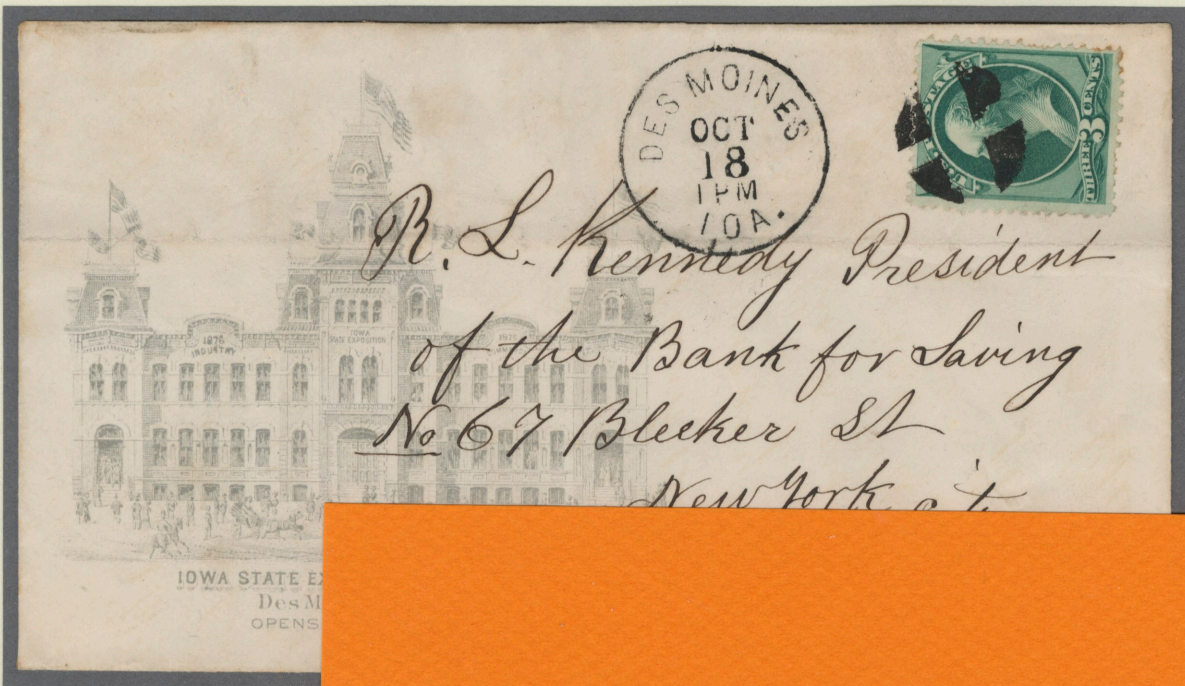 DES MOINES
OCT
18
1 PM
IOA.
U.S. POSTAGE
THREE 3 CENTS
R. L. Kennedy President
of the Bank for Saving
No 67 Bleeker St
New York
1876
INDUSTRY
IOWA
STATE EXPOSITION
IOWA STATE
Des
OPENS